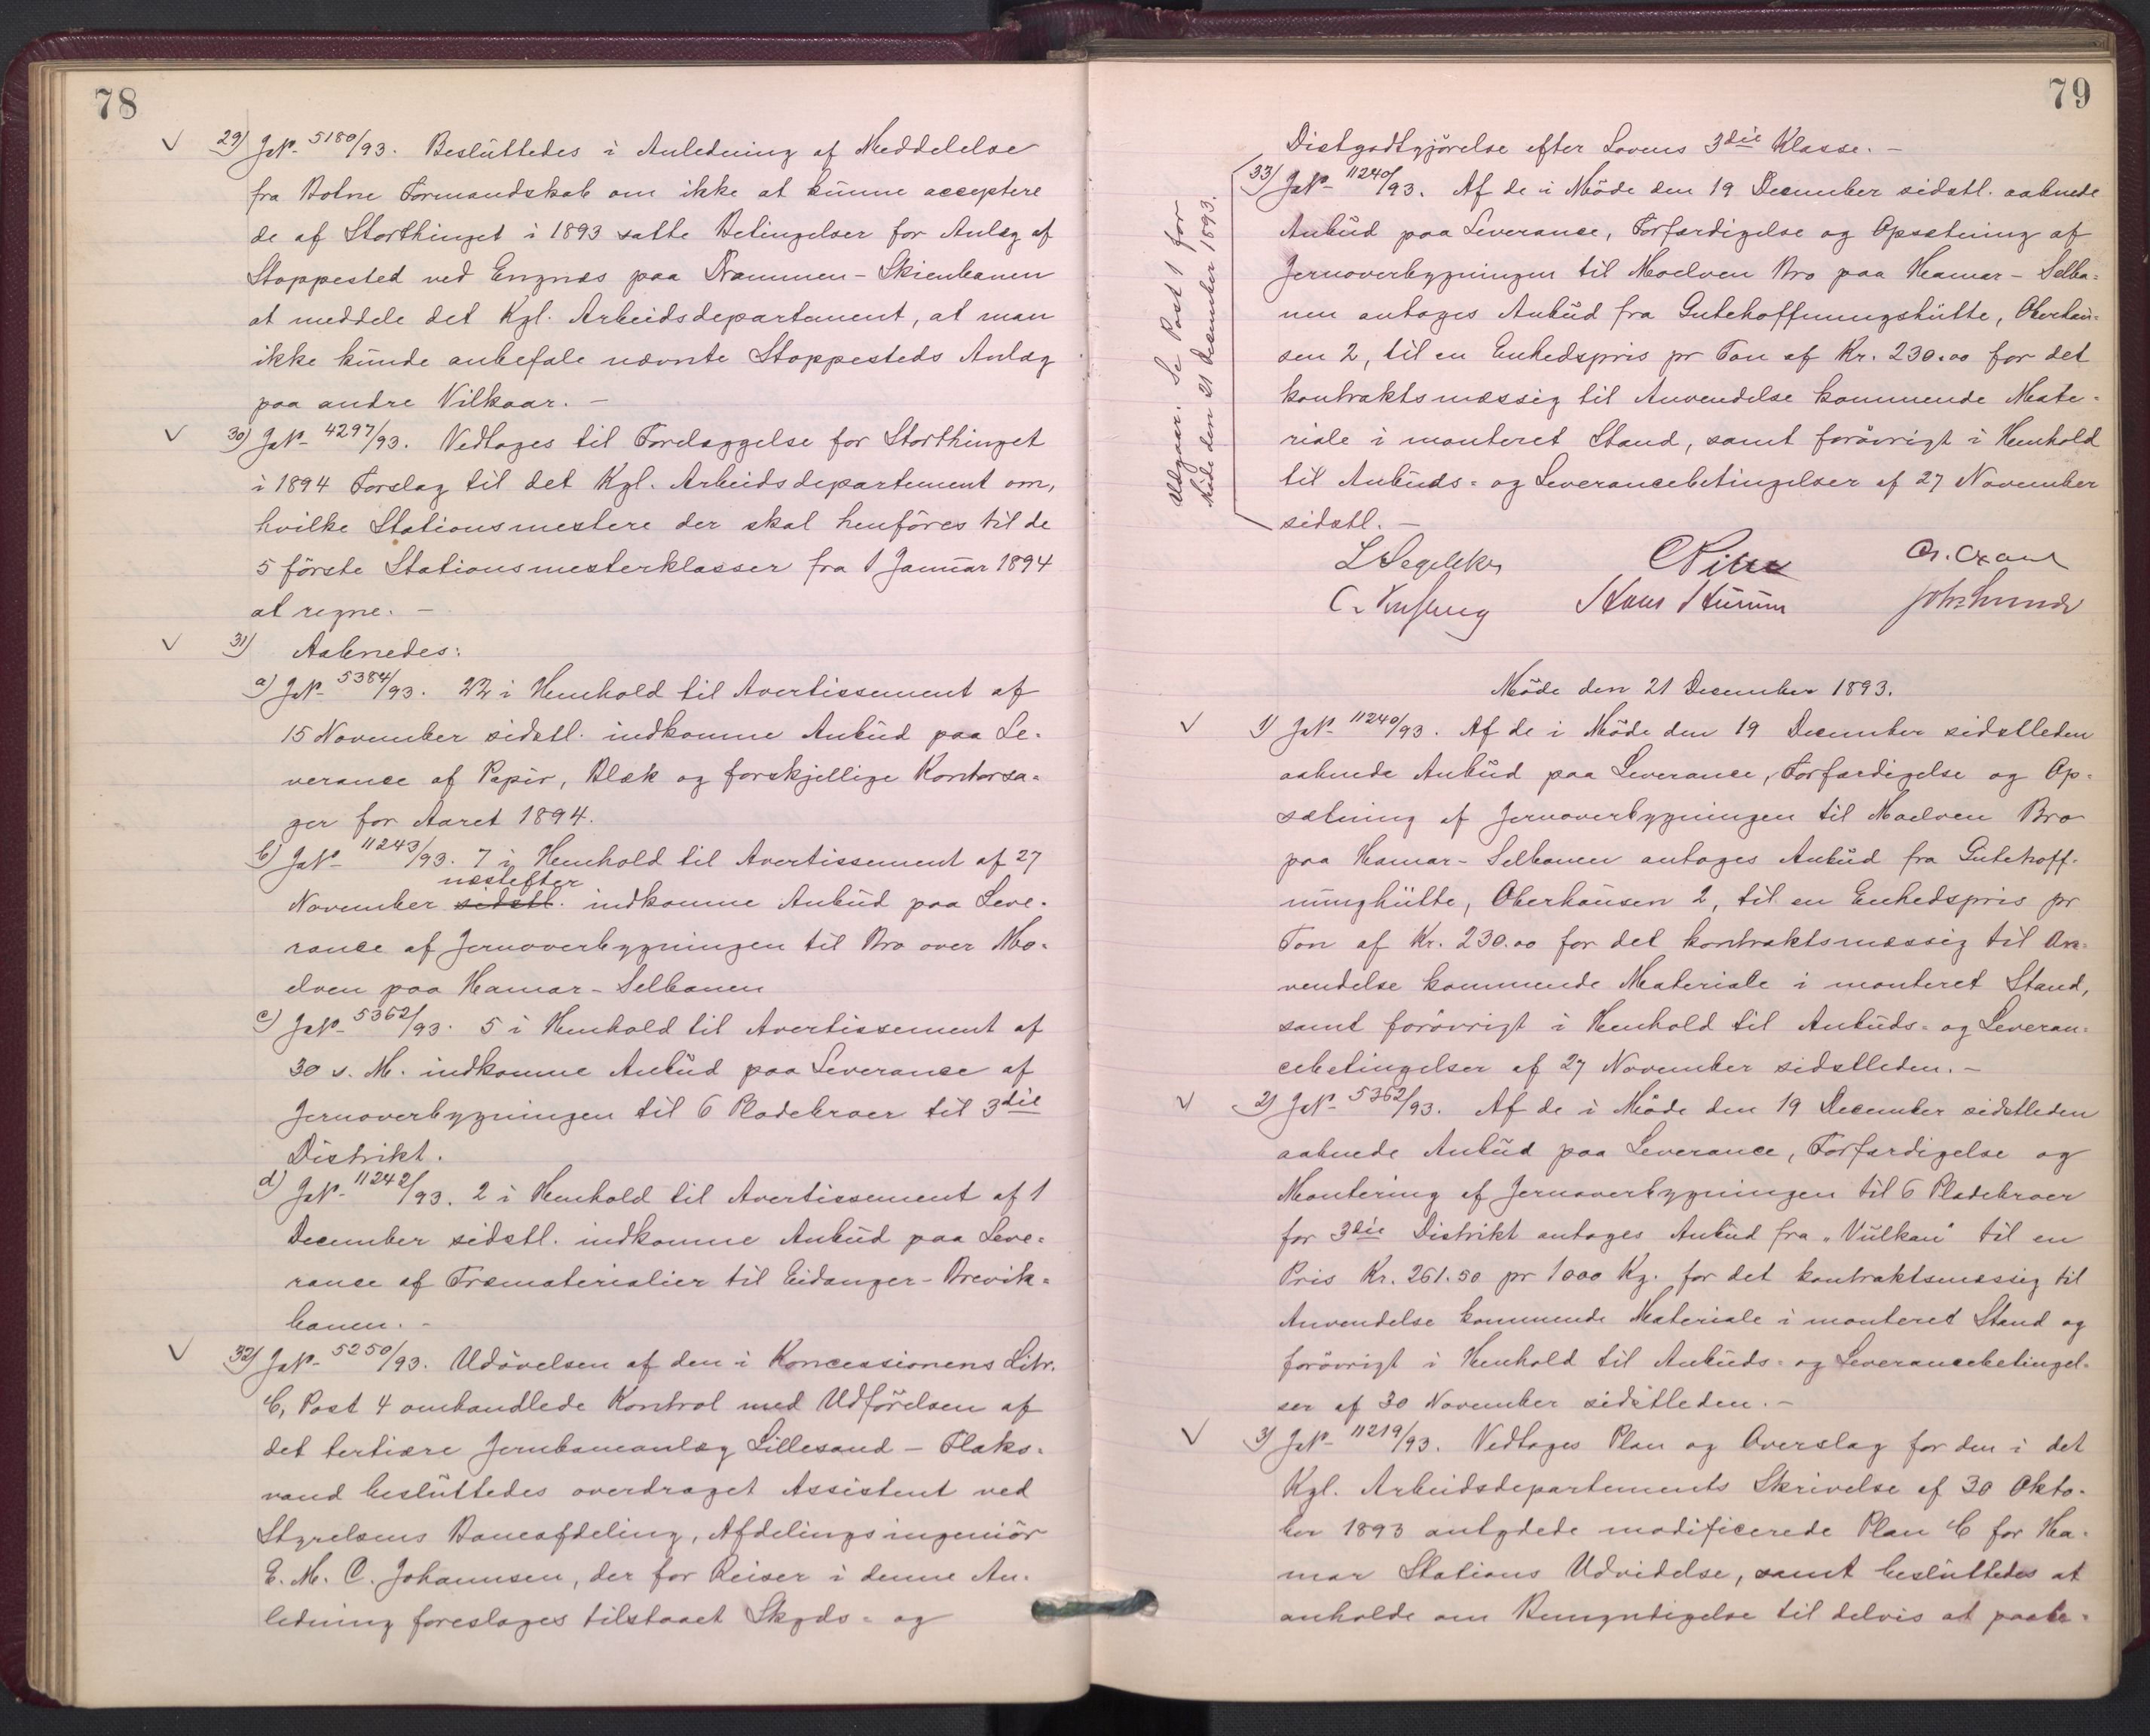 78
29) JNo 5180/93. Besluttedes i Anledning af Meddelelse
fra Botne Formandskab om ikke at kunne acceptere
de af Storthinget i 1893 satte Betingelser for Anlæg af
Stoppested ved Engnæs paa Drammen-Skienbanen
at meddele det Kgl. Arbeidsdepartement, at man
ikke kunde anbefale nævnte Stoppesteds Anlæg
paa andre Vilkaar. –
30) JNo 4297/93. Vedtages til Forelæggelse for Storthinget
i 1894 Forslag til det Kgl. Arbeidsdepartement om,
hvilke Stationsmestere der skal henføres til de
5 første Stationsmesterklasser fra 1 Januar 1894
at regne. –
31) Aabnedes:
a) JNo 5384/93. 22 i Henhold til Avertissement af
15 November sidstl. indkomne Anbud paa Le-
verance af Papir, Blæk og forskjellige Kontorsa-
ger for Aaret 1894.
b) JNo 11243/93. 7 i Henhold til Avertissement af 27
næstefter
November sidstl. indkomne Anbud paa Leve-
rance af Jernoverbygningen til Bro over Mo-
elven paa Hamar-Selbanen
c) JNo 5362/93. 5 i Henhold til Avertissement af
30 s. M. indkomne Anbud paa Leverance af
Jernoverbygningen til 6 Pladebroer til 3die
Distrikt.
d) JNo 11242/93. 2 i Henhold til Avertissement af 1
December sidstl. indkomne Anbud paa Leve-
rance af Træmaterialier til Eidanger-Brevik-
banen. –
32) JNo 5250/93. Udøvelsen af den i Koncessionens Litr.
C, Post 4 omhandlede Kontrol med Udførelsen af
det tertiære Jernbaneanlæg Lillesand – Flaks-
vand besluttedes overdraget Assistent ved
Styrelsens Baneafdeling, Afdelingsingeniør
E. M. C. Johannsen, der for Reiser i denne An-
ledning foreslages tilstaaet Skyds- og
79
Diætgodtgjørelse efter Lovens 3die Klasse. –
Udgaar. Se Post 1 for
Møde den 21 December 1893.
33) JNo 11240/93. Af de i Møde den 19 December sidstl. aabnede
Anbud paa Leverance, Forfærdigelse og Opsætning af
Jernoverbygningen til Moelven Bro paa Hamar-Selba-
nen antages Anbud fra Gutehoffnungshütte, Oberhau-
sen 2, til en Enhedspris pr Ton af Kr. 230.00 for det
kontraktsmæssig til Anvendelse kommende Mate-
riale i monteret Stand, samt forøvrigt i Henhold
til Anbuds- og Leverancebetingelser af 27 November
sidstl. –
L Segelcke C Pihl
Hans Hurum
Møde den 21 December 1893.
1) JNo 11240/93. Af de i Møde den 19 December sidstleden
aabnede Anbud paa Leverance, Forfærdigelse og Op-
sætning af Jernoverbygningen til Moelven Bro
paa Hamar-Selbanen antages Anbud fra Gutehoff-
nunghütte, Oberhausen 2, til en Enhedspris pr
Ton af Kr. 230.00 for det kontraktsmæssig til An-
vendelse kommende Materiale i monteret Stand,
samt forøvrigt i Henhold til Anbuds- og Leveran-
cebetingelser af 27 November sidstleden. –
2) JNo 5362/93. Af de i Møde den 19 December sidstleden
aabnede Anbud paa Leverance, Forfærdigelse og
Montering af Jernoverbygningen til 6 Pladebroer
for 3die Distrikt antages Anbud fra „Vulkan" til en
Pris Kr. 261.50 pr 1000 Kg. for det kontraktsmæssig til
Anvendelse kommende Materiale i monteret Stand og
forøvrigt i Henhold til Anbuds- og Leverancebetingel-
ser af 30 November sidstleden. –
3) JNo 11219/93. Vedtages Plan og Overslag for den i det
Kgl. Arbeidsdepartements Skrivelse af 30 Okto-
ber 1893 antydede modificerede Plan C for Ha-
mar Stations Udvidelse, samt besluttedes at
anholde om Bemyndigelse til delvis at paabe-